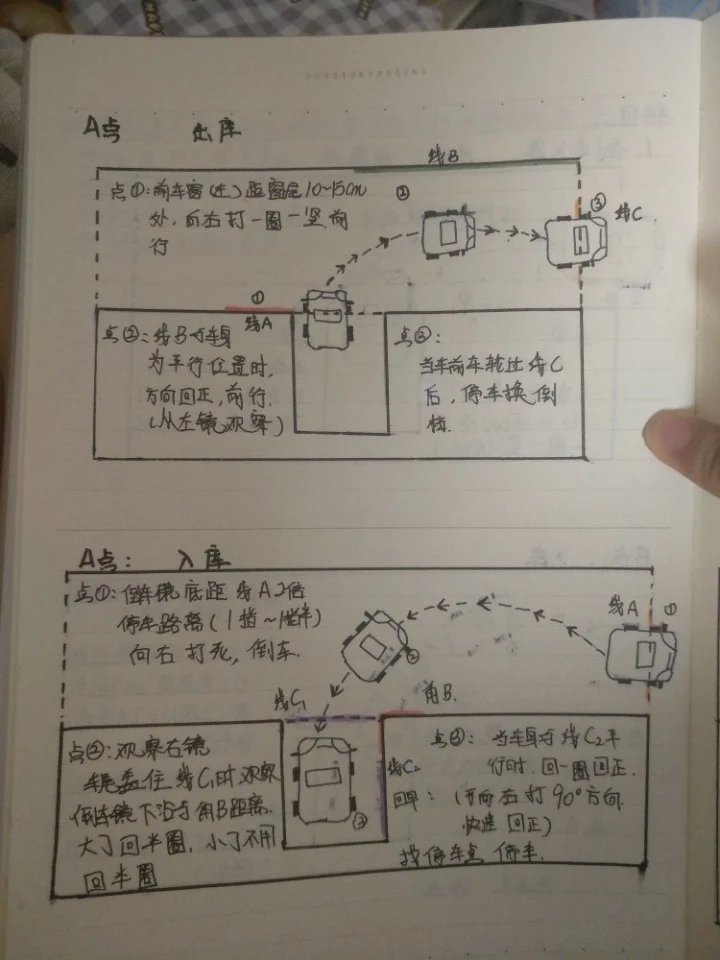 A点 出库
线B
点①:前车窗(左)距窗尾10~15cm
处,向右打一圈一竖前
行
②
③
线C
①
线A
点②:线B与车身
为平行位置时,
方向回正,前行.
(从左镜观察)
点③:
当车前车轮过线C
后,停车换倒
A点: 入库
点①:倒车镜底距线A2倍
停车路离(1掐~1掐半)
向右打死,倒车.
线A
①
②
线C₁
角B.
点②:观察右镜
车尾盖住线C₁时,观察
倒车镜下沿与角B距离.
大了回半圈,小了不用
回半圈
③
线C₂
点③:当车身与线C₂平
行时.回一圈回正.
回早:(方向右打90°方向.
快速回正)
找停车点停车.